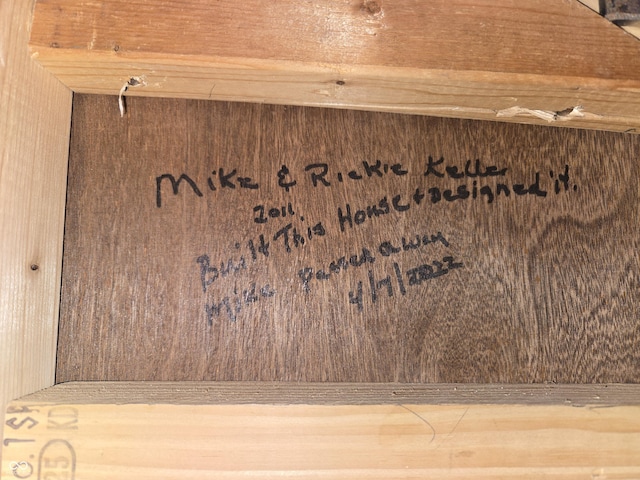 Mike & Rickie Keller
2011.
Built This House & Designed it.
Mike passed away
4/7/2022
O. 1 S
25 KD